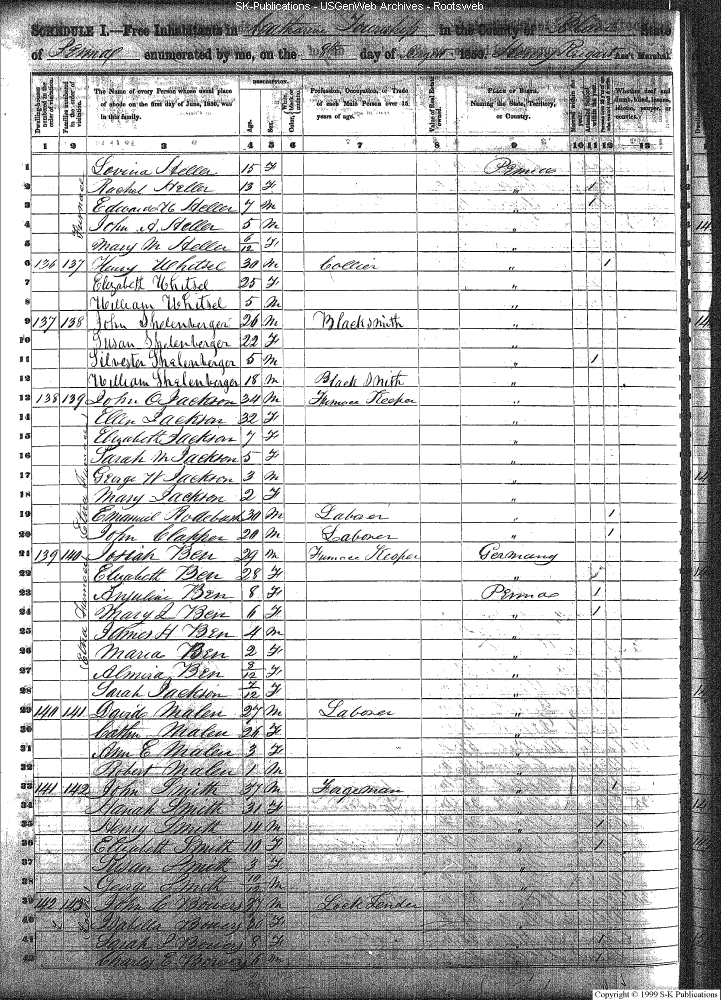 SK-Publications - USGenWeb Archives - Rootsweb
SCHEDULE I.—Free Inhabitants in Catharine Township in the County of State
of Penna enumerated by me, on the day of August 1850. Ass't Marshal.
Dwelling-houses numbered in the order of visitation.
Families numbered in the order of visitation.
The Name of every Person whose usual place of abode on the first day of June, 1850, was in this family.
DESCRIPTION.
Age.
Sex.
Color
Profession, Occupation, or Trade of each Male Person over 15 years of age.
Value of Real Estate owned.
PLACE OF BIRTH. Naming the State, Territory, or Country.
Whether deaf and dumb, blind, insane, idiotic, pauper, or convict.
1 2 3 4 5 6 7 8 9 10 11 12 13
1 Lovina Heller 15 F Penna
2 Rachel Heller 13 F " 1
3 Edward H Heller 7 M " 1
4 John A. Heller 5 M "
5 Mary M Heller 6/12 F "
6 136 137 Henry Whitsel 30 M Collier " 1
7 Elizabeth Whitsel 25 F "
8 William Whitsel 5 M "
9 137 138 John Shelenberger 26 M Blacksmith "
10 Susan Shelenberger 22 F "
11 Silvester Shelenberger 5 M " 1
12 William Shelenberger 18 M Black Smith "
13 138 139 John C Jackson 34 M Furnace Keeper "
14 Ellen Jackson 32 F "
15 Elizabeth Jackson 7 F "
16 Sarah M Jackson 5 F "
17 George W Jackson 3 M "
18 Mary Jackson 2 F "
19 Emanuel 30 M Laborer " 1
20 John Clapper 20 M Laborer " 1
21 139 140 Josiah Ben 29 M Furnace Keeper Germany
22 Elizabeth Ben 28 F "
23 Ben 8 F Penna 1
24 Mary Ben 6 F " 1
25 James H Ben 4 M "
26 Maria Ben 2 F "
27 Almira Ben 8/12 F "
28 Sarah Jackson F "
29 140 141 David Malen 27 M Laborer "
30 Malen F "
31 Ann E Malen 3 F "
32 Robert Malen 1 M "
33 141 142 John Smith 37 M Forgeman " 1
34 Hanah Smith 31 F "
35 Henry Smith 14 M " 1
36 Elizabeth Smith 10 F " 1
37 Susan Smith 3 F "
38 George Smith 10/12 M "
39 142 143 John C Bowers 37 M Lock Tender "
40 Isabella Bowers F "
41 Sarah Bowers 8 F " 1
42 Charles E Bowers 6 M " 1
Copyright © 1999 S-K Publications